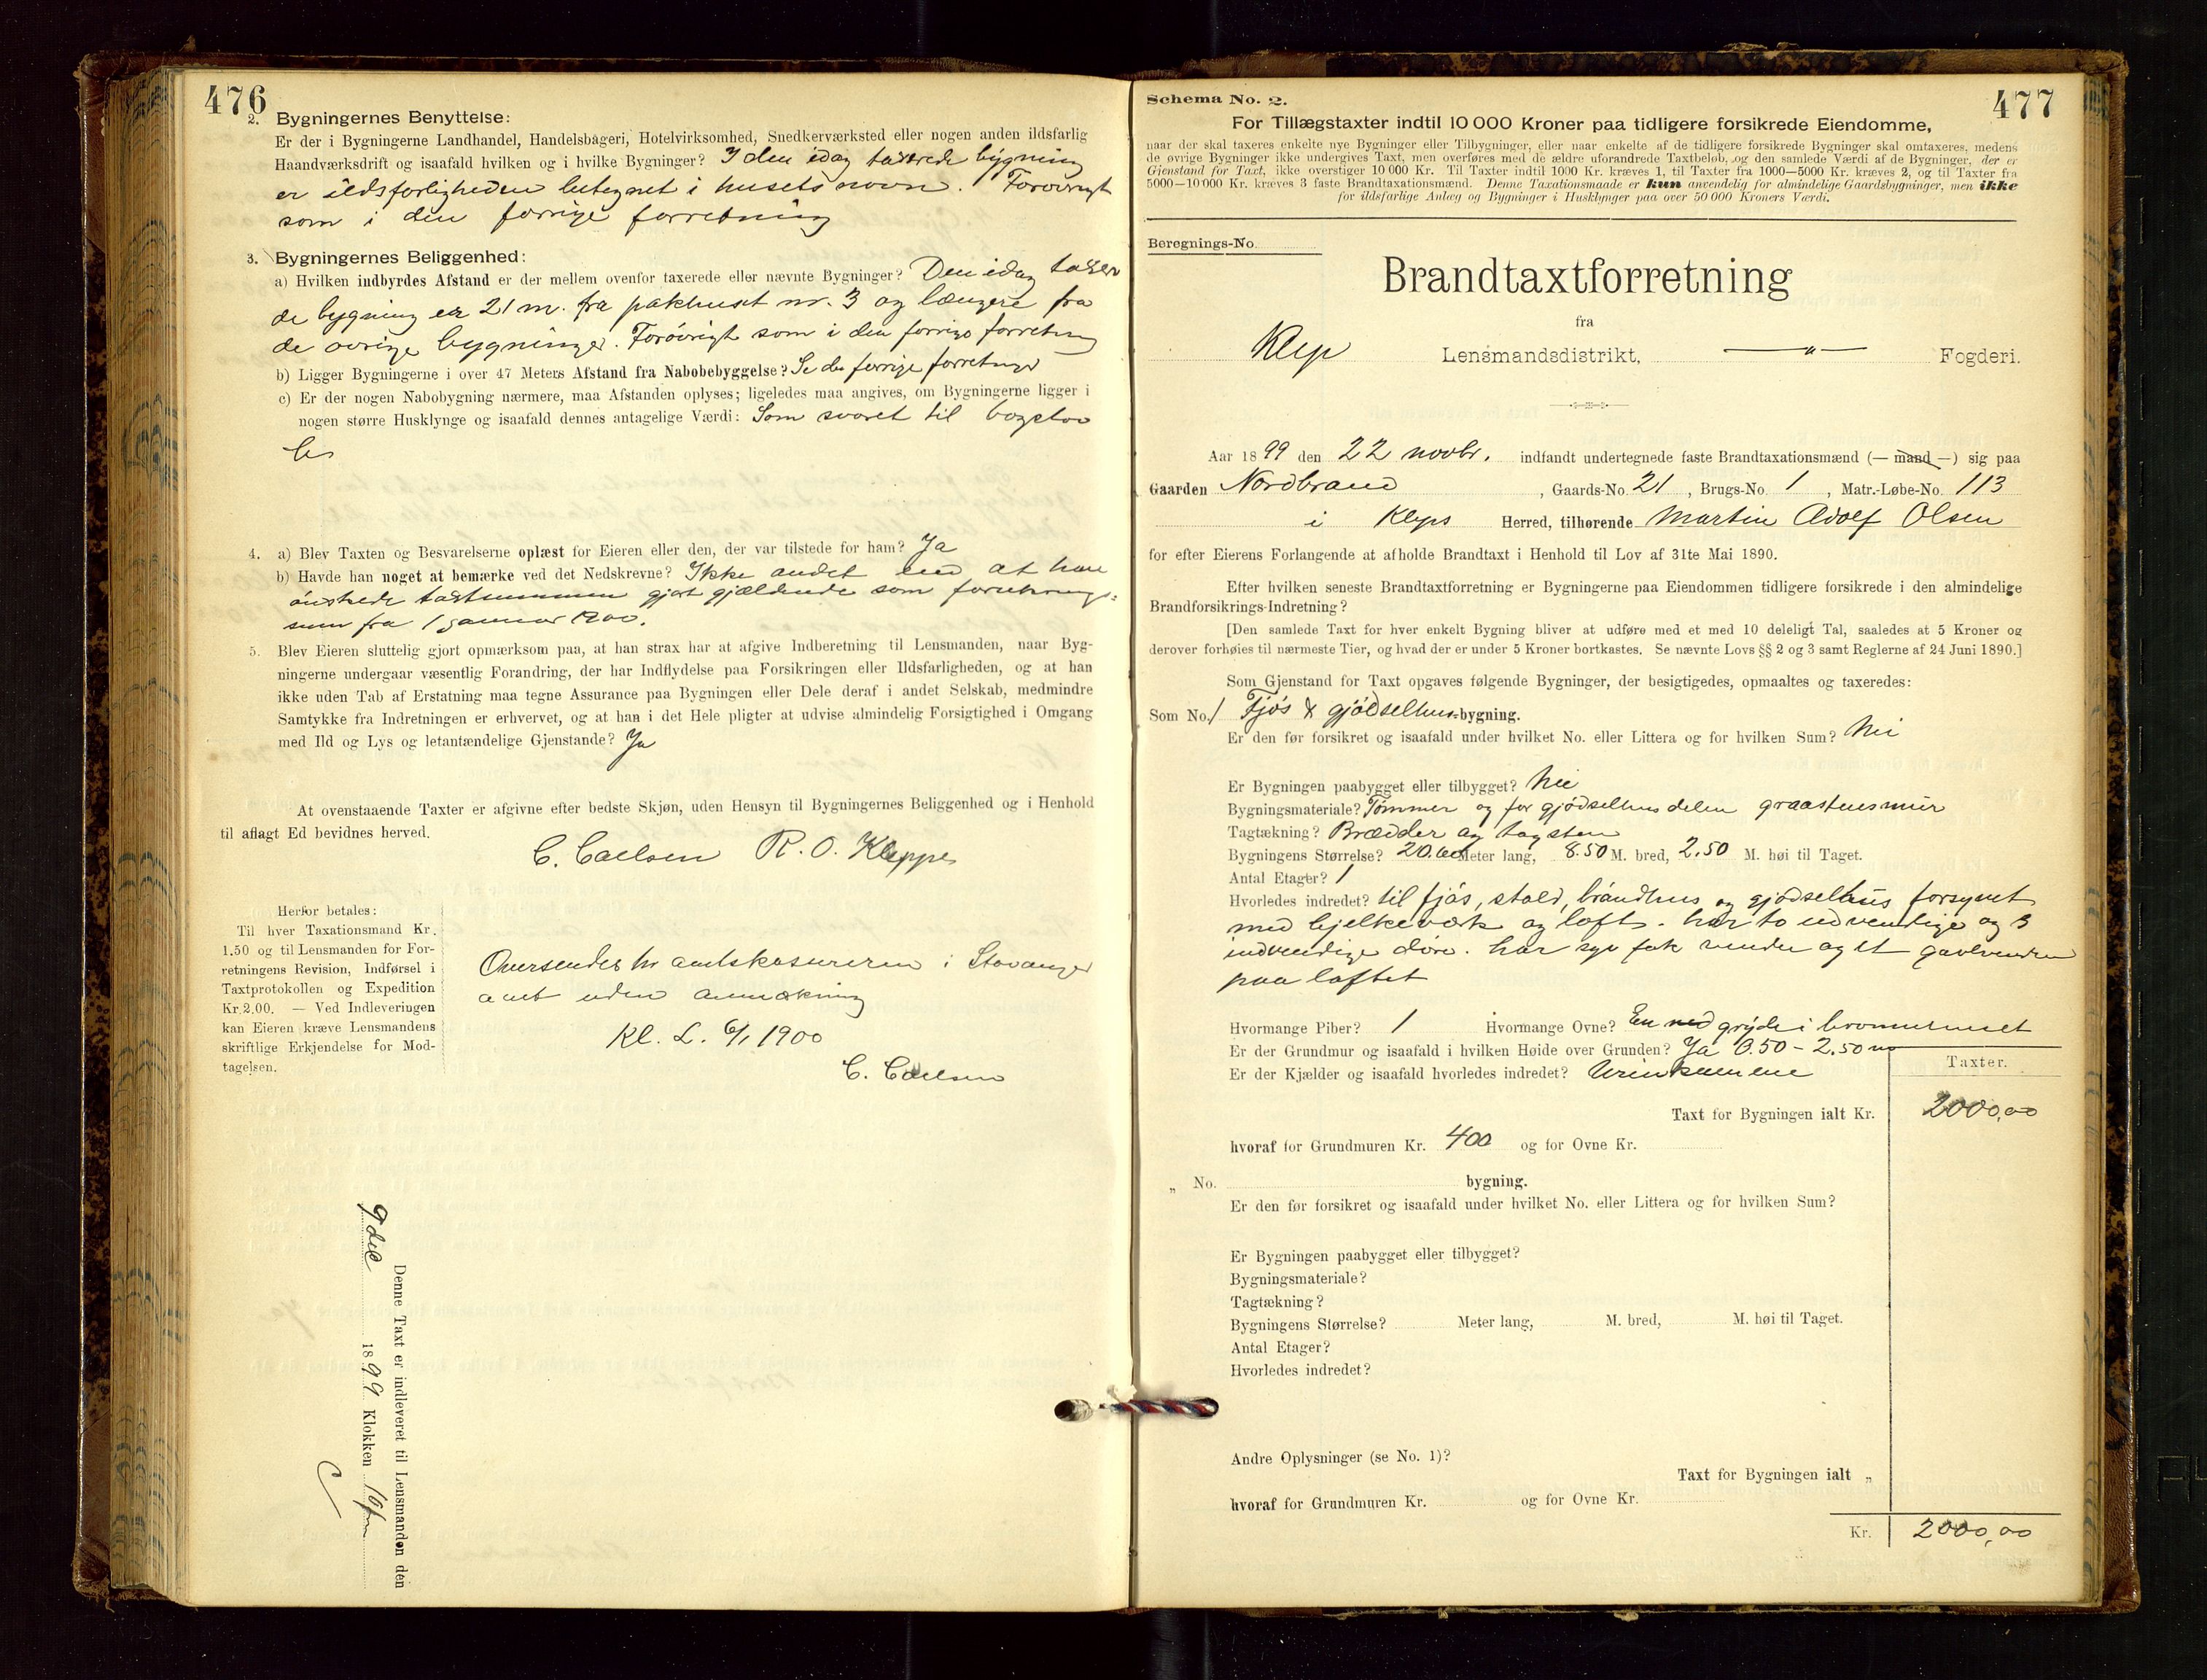 476
2. Bygningernes Benyttelse:
Er der i Bygningerne Landhandel, Handelsbageri, Hotelvirksomhed, Snedkerværksted eller nogen anden ildsfarlig
Haandværksdrift og isaafald hvilken og i hvilke Bygninger? I den idag taxerede bygning
er ildsfarligheden betegnet i husets navn. Forøvrigt
som i den forrige forretning
3. Bygningernes Beliggenhed:
a) Hvilken indbyrdes Afstand er der mellem ovenfor taxerede eller nævnte Bygninger? Den idag taxere
de bygning er 21 m. fra pakhuset nr. 3 og længere fra
de øvrige bygninger. Forøvrigt som i den forrige forretning
b) Ligger Bygningerne i over 47 Meters Afstand fra Nabobebyggelse? Se den forrige forretning
c) Er der nogen Nabobygning nærmere, maa Afstanden oplyses; ligeledes maa angives, om Bygningerne ligger i
nogen større Husklynge og isaafald dennes antagelige Værdi: Som svaret til bogstav
b
4. a) Blev Taxten og Besvarelserne oplæst for Eieren eller den, der var tilstede for ham? Ja
b) Havde han noget at bemærke ved det Nedskrevne? Ikke andet end at han
ønskede taxtsummen gjort gjældende som forsikrings-
sum fra 1 januar 1900.
5. Blev Eieren sluttelig gjort opmærksom paa, at han strax har at afgive Indberetning til Lensmanden, naar Byg-
ningerne undergaar væsentlig Forandring, der har Indflydelse paa Forsikringen eller Ildsfarligheden, og at han
ikke uden Tab af Erstatning maa tegne Assurance paa Bygningen eller Dele deraf i andet Selskab, medmindre
Samtykke fra Indretningen er erhvervet, og at han i det Hele pligter at udvise almindelig Forsigtighed i Omgang
med Ild og Lys og letantændelige Gjenstande? Ja
At ovenstaaende Taxter er afgivne efter bedste Skjøn, uden Hensyn til Bygningernes Beliggenhed og i Henhold
til aflagt Ed bevidnes herved.
C. Caelsen R. O. Kleppe
Herfor betales:
Til hver Taxationsmand Kr.
1.50 og til Lensmanden for For-
retningens Revision, Indførsel i
Taxtprotokollen og Expedition
Kr. 2.00. — Ved Indleveringen
kan Eieren kræve Lensmandens
skriftlige Erkjendelse for Mod-
tagelsen.
Oversendes hr amtskasereren i Stavanger
amt uden anmærkning
Kl. L. 6/1 1900
C. Caelsen
Denne Taxt er indleveret til Lensmanden den
9 dec 1899 Klokken 10 fm
C
Schema No. 2.
477
For Tillægstaxter indtil 10 000 Kroner paa tidligere forsikrede Eiendomme,
naar der skal taxeres enkelte nye Bygninger eller Tilbygninger, eller naar enkelte af de tidligere forsikrede Bygninger skal omtaxeres, medens
de øvrige Bygninger ikke undergives Taxt, men overføres med de ældre uforandrede Taxtbeløb, og den samlede Værdi af de Bygninger, der er
Gjenstand for Taxt, ikke overstiger 10 000 Kr. Til Taxter indtil 1000 Kr. kræves 1, til Taxter fra 1000—5000 Kr. kræves 2, og til Taxter fra
5000—10 000 Kr. kræves 3 faste Brandtaxationsmænd. Denne Taxationsmaade er kun anvendelig for almindelige Gaardsbygninger, men ikke
for ildsfarlige Anlæg og Bygninger i Husklynger paa over 50 000 Kroners Værdi.
Beregnings-No.
Brandtaxtforretning
fra
Klep Lensmandsdistrikt, — " — Fogderi.
Aar 1899 den 22 novbr. indfandt undertegnede faste Brandtaxationsmænd (— mand —) sig paa
Gaarden Nordbraud, Gaards-No. 21, Brugs-No. 1, Matr.-Løbe-No. 113
i Kleps Herred, tilhørende Martin Adolf Olsen
for efter Eierens Forlangende at afholde Brandtaxt i Henhold til Lov af 31te Mai 1890.
Efter hvilken seneste Brandtaxtforretning er Bygningerne paa Eiendommen tidligere forsikrede i den almindelige
Brandforsikrings-Indretning?
[Den samlede Taxt for hver enkelt Bygning bliver at udføre med et med 10 deleligt Tal, saaledes at 5 Kroner og
derover forhøies til nærmeste Tier, og hvad der er under 5 Kroner bortkastes. Se nævnte Lovs §§ 2 og 3 samt Reglerne af 24 Juni 1890.]
Som Gjenstand for Taxt opgaves følgende Bygninger, der besigtigedes, opmaaltes og taxeredes:
Som No. 1 Fjøs & gjødselhus-bygning.
Er den før forsikret og isaafald under hvilket No. eller Littera og for hvilken Sum? Nei
Er Bygningen paabygget eller tilbygget? Nei
Bygningsmateriale? Tømmer og for gjødselhusdelen graastensmur
Tagtækning? Brædder og tagsten
Bygningens Størrelse? 20.60 Meter lang, 8.50 M. bred, 2.50 M. høi til Taget.
Antal Etager? 1
Hvorledes indredet? til fjøs, stald, brændhus og gjødselhus forsynet
med bjelkeværk og loft. har to udvendige og 3
indvendige døre. har syv fak vinduer og et gavlvindu
paa loftet
Hvormange Piber? 1 Hvormange Ovne? En gryde i
Er der Grundmur og isaafald i hvilken Høide over Grunden? Ja 0.50 - 2.50 m
Er der Kjælder og isaafald hvorledes indredet? Urinkumme
Taxter.
Taxt for Bygningen ialt Kr. 2000,00
hvoraf for Grundmuren Kr. 400 og for Ovne Kr.
„ No. bygning.
Er den før forsikret og isaafald under hvilket No. eller Littera og for hvilken Sum?
Er Bygningen paabygget eller tilbygget?
Bygningsmateriale?
Tagtækning?
Bygningens Størrelse? Meter lang, M. bred, M. høi til Taget.
Antal Etager?
Hvorledes indredet?
Andre Oplysninger (se No. 1)?
Taxt for Bygningen ialt „
hvoraf for Grundmuren Kr. og for Ovne Kr.
Kr. 2000,00